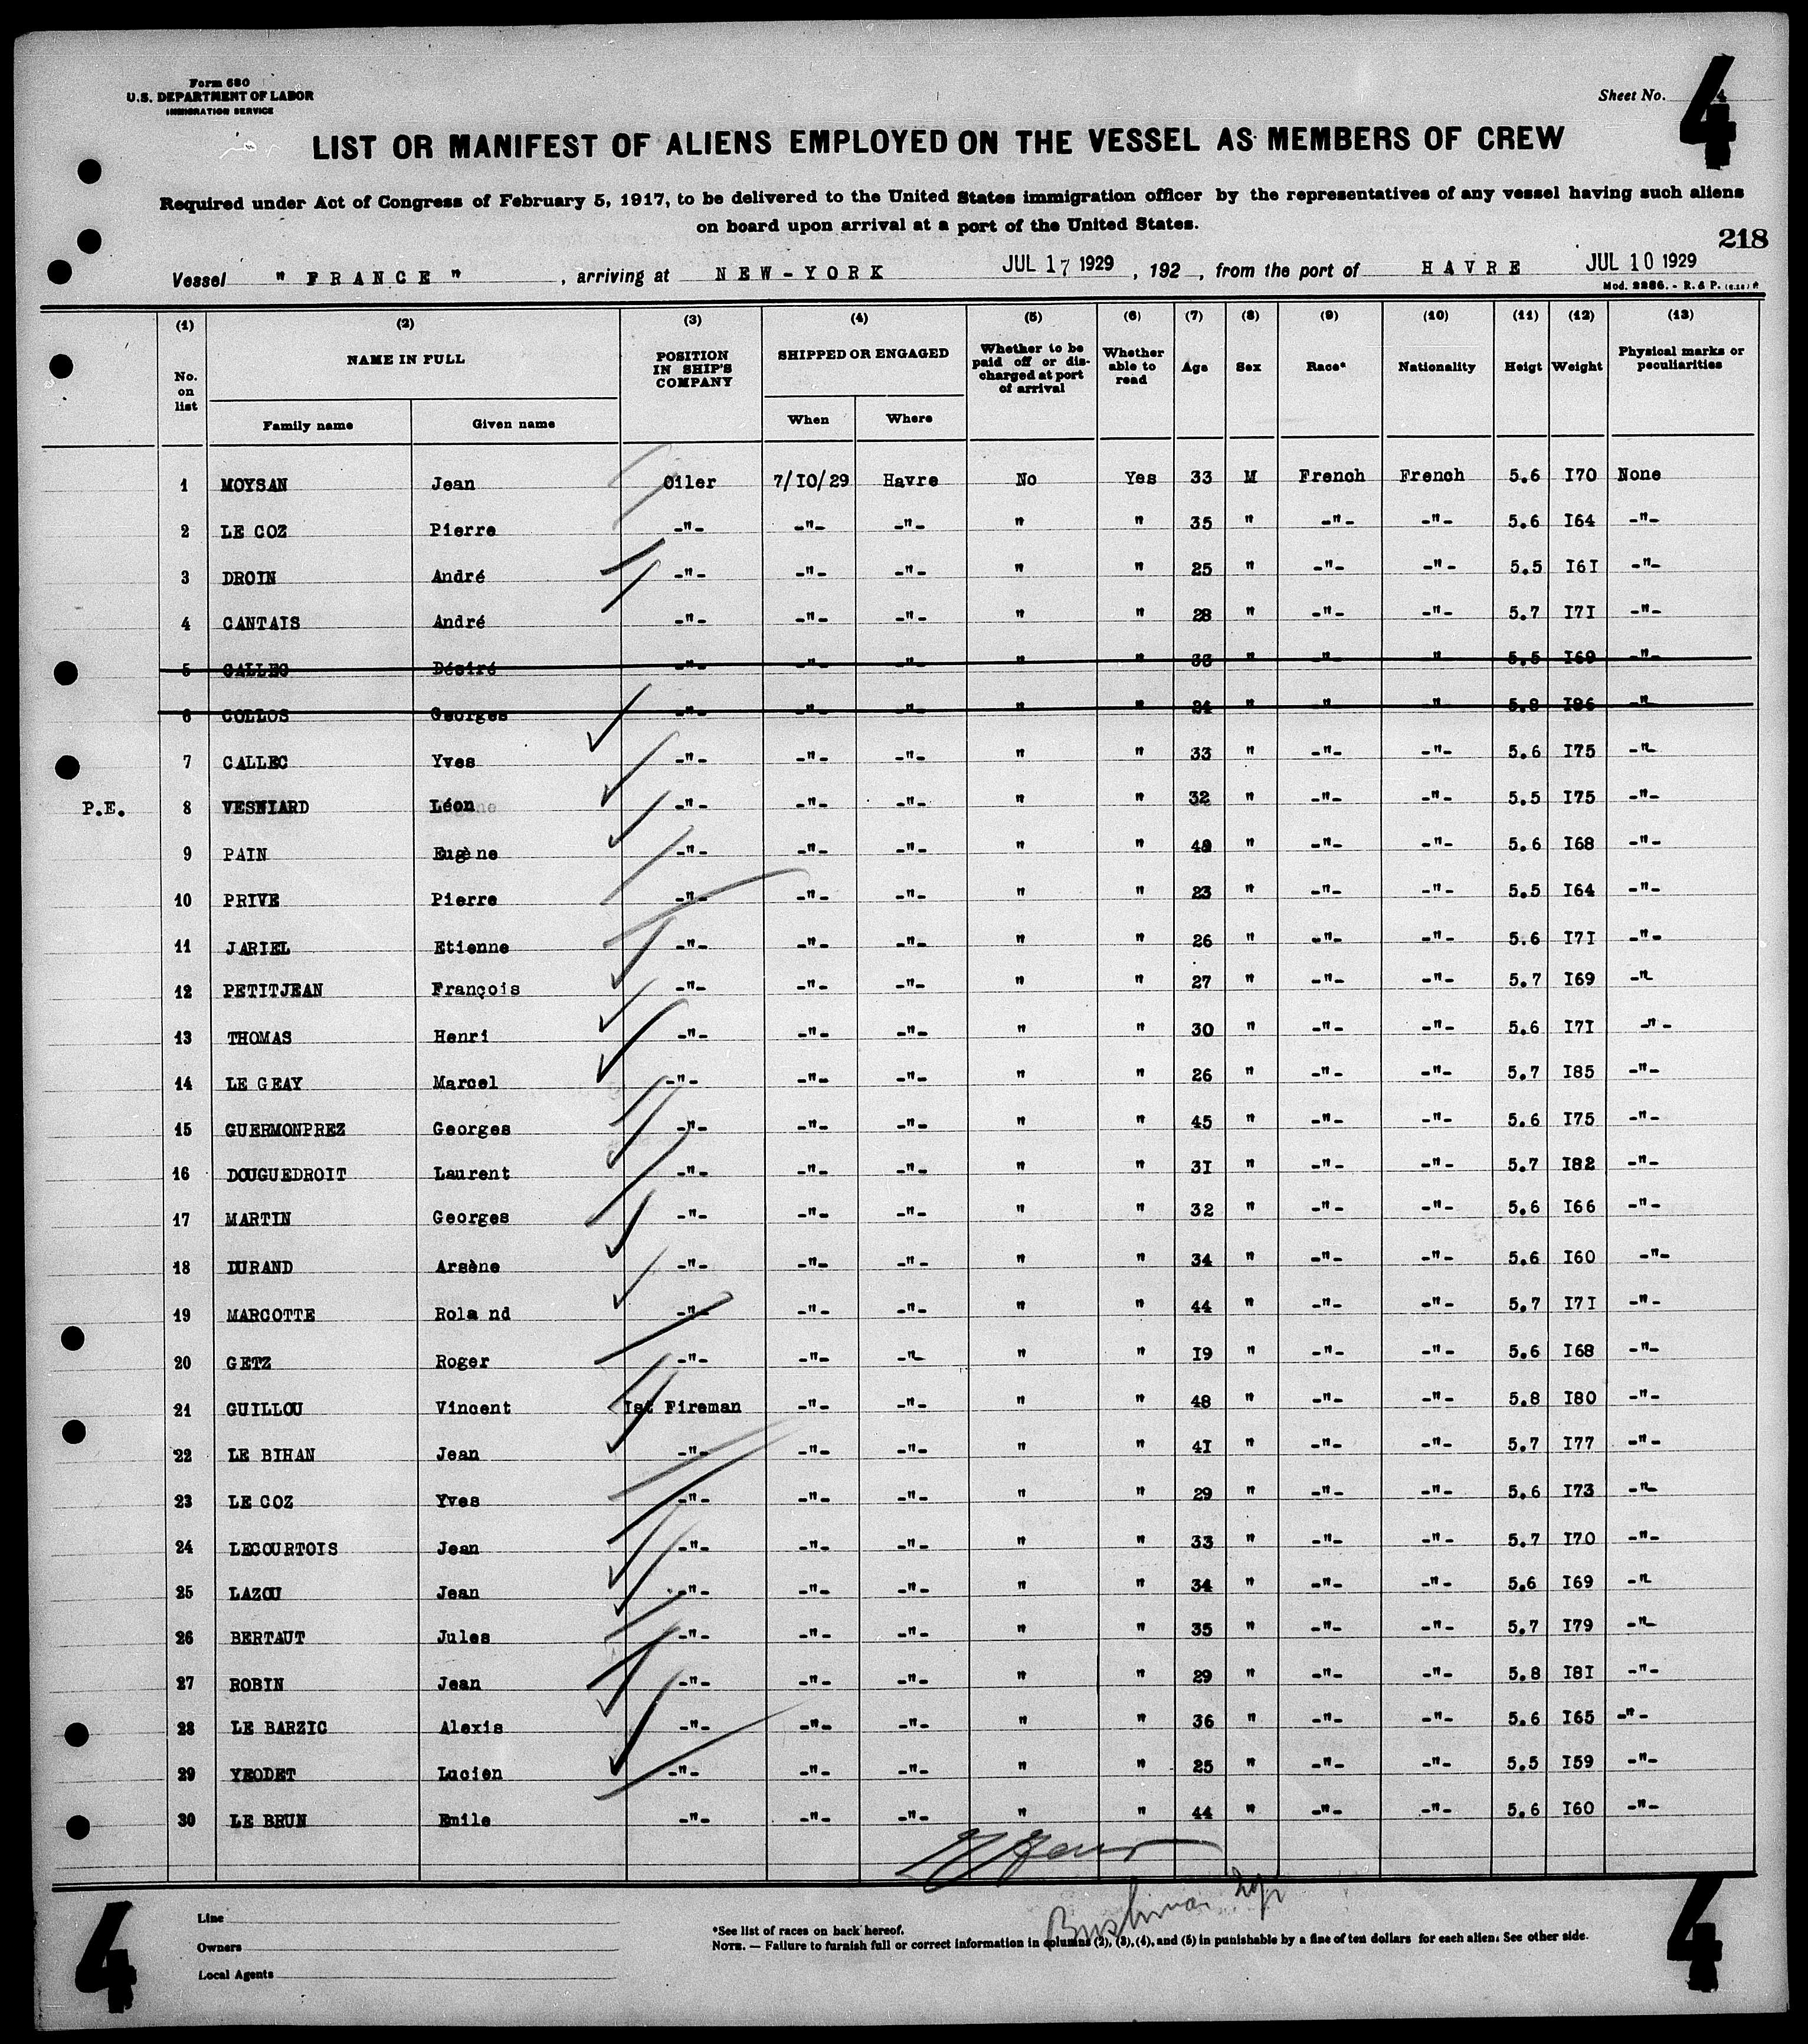 Form 680
U.S. DEPARTMENT OF LABOR
IMMIGRATION SERVICE
Sheet No. 4
4
LIST OR MANIFEST OF ALIENS EMPLOYED ON THE VESSEL AS MEMBERS OF CREW
Required under Act of Congress of February 5, 1917, to be delivered to the United States immigration officer by the representatives of any vessel having such aliens
on board upon arrival at a port of the United States.
218
Vessel "FRANCE", arriving at NEW-YORK JUL 17 1929, 192 , from the port of HAVRE JUL 10 1929
Mod. 2286. - R. & P.
(1) (2) (3) (4) (5) (6) (7) (8) (9) (10) (11) (12) (13)
No. on list NAME IN FULL POSITION IN SHIP'S COMPANY SHIPPED OR ENGAGED Whether to be paid off or discharged at port of arrival Whether able to read Age Sex Race* Nationality Heigt Weight Physical marks or peculiarities
Family name Given name When Where
1 MOYSAN Jean Oiler 7/10/29 Havre No Yes 33 M French French 5.6 I70 None
2 LE COZ Pierre -"- -"- -"- " " 35 " -"- -"- 5.6 I64 -"-
3 DROIN André -"- -"- -"- " " 25 " -"- -"- 5.5 I6I -"-
4 CANTAIS André -"- -"- -"- " " 28 " -"- -"- 5.7 I7I -"-
5 CALLEC Désiré -"- -"- -"- " " 33 " -"- -"- 5.5 I69 -"-
6 COLLOS Georges -"- -"- -"- " " 24 " -"- -"- 5.8 I86 -"-
7 CALLEC Yves -"- -"- -"- " " 33 " -"- -"- 5.6 I75 -"-
P.E. 8 VESNIARD Léon -"- -"- -"- " " 32 " -"- -"- 5.5 I75 -"-
9 PAIN Eugène -"- -"- -"- " " " -"- -"- 5.6 I68 -"-
10 PRIVE Pierre -"- -"- -"- " " 23 " -"- -"- 5.5 I64 -"-
11 JARIEL Etienne -"- -"- -"- " " 26 " -"- -"- 5.6 I7I -"-
12 PETITJEAN François -"- -"- -"- " " 27 " -"- -"- 5.7 I69 -"-
13 THOMAS Henri -"- -"- -"- " " 30 " -"- -"- 5.6 I7I -"-
14 LE GEAY Marcel -"- -"- -"- " " 26 " -"- -"- 5.7 I85 -"-
15 GUERMONPREZ Georges -"- -"- -"- " " 45 " -"- -"- 5.6 I75 -"-
16 DOUGUEDROIT Laurent -"- -"- -"- " " 3I " -"- -"- 5.7 I82 -"-
17 MARTIN Georges -"- -"- -"- " " 32 " -"- -"- 5.6 I66 -"-
18 DURAND Arsène -"- -"- -"- " " 34 " -"- -"- 5.6 I60 -"-
19 MARCOTTE Rola nd -"- -"- -"- " " 44 " -"- -"- 5.7 I7I -"-
20 GETZ Roger -"- -"- -"- " " I9 " -"- -"- 5.6 I68 -"-
21 GUILLOU Vincent Ist Fireman -"- -"- " " 48 " -"- -"- 5.8 I80 -"-
22 LE BIHAN Jean -"- -"- -"- " " 4I " -"- -"- 5.7 I77 -"-
23 LE COZ Yves -"- -"- -"- " " 29 " -"- -"- 5.6 I73 -"-
24 LECOURTOIS Jean -"- -"- -"- " " 33 " -"- -"- 5.7 I70 -"-
25 LAZOU Jean -"- -"- -"- " " 34 " -"- -"- 5.6 I69 -"-
26 BERTAUT Jules -"- -"- -"- " " 35 " -"- -"- 5.7 I79 -"-
27 ROBIN Jean -"- -"- -"- " " 29 " -"- -"- 5.8 I8I -"-
28 LE BARZIC Alexis -"- -"- -"- " " 36 " -"- -"- 5.6 I65 -"-
29 YEODET Lucien -"- -"- -"- " " 25 " -"- -"- 5.5 I59 -"-
30 LE BRUN Emile -"- -"- -"- " " 44 " -"- -"- 5.6 I60 -"-
4
4
Line
Owners
Local Agents
*See list of races on back hereof.
NOTE. — Failure to furnish full or correct information in columns (2), (3), (4), and (5) in punishable by a fine of ten dollars for each alien. See other side.